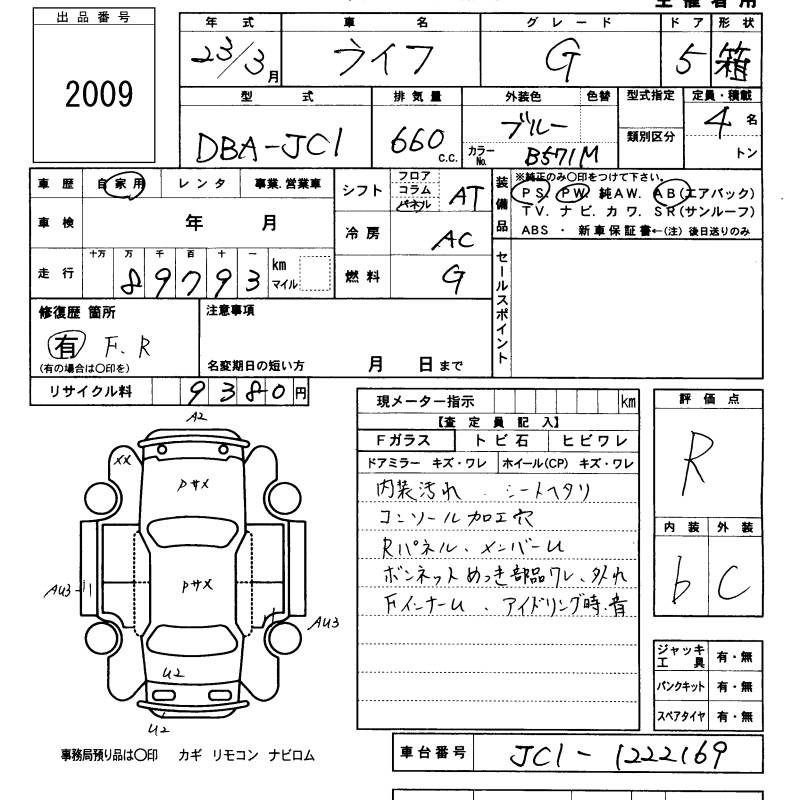 出品番号
2009
年式 車名 グレード ドア 形状
23/3月 ライフ G 5 箱
型式 排気量 外装色 色替 型式指定 定員・積載
DBA-JC1 660 c.c. ブルー 類別区分 4名
カラーNo. B571M トン
車歴 自家用 レンタ 事業.営業車
車検 年 月
走行 十万 万 千 百 十 一 km マイル
89793
シフト フロア コラム パネル AT
冷房 AC
燃料 G
装備品 ※純正のみ〇印をつけて下さい。
PS PW. 純AW. AB(エアバック)
TV. ナビ. カワ. SR(サンルーフ)
ABS ・ 新車保証書←(注) 後日送りのみ
セールスポイント
修復歴 箇所
有 F. R
(有の場合は〇印を)
注意事項
名変期日の短い方 月 日まで
リサイクル料 9380円
現メーター指示 km
【査定員記入】
Fガラス トビ石 ヒビワレ
ドアミラー キズ・ワレ ホイール(CP) キズ・ワレ
内装汚れ . シートヘタリ
コンソール加工穴
Rパネル、メンバーU
ボンネットめっき部品ワレ、外れ
FインナーU 、アイドリング時、音
評価点
R
内装 外装
b C
A2
XX
Pサメ
Pサメ
AU3
AU3
U2
U2
ジャッキ工具 有・無
パンクキット 有・無
スペアタイヤ 有・無
事務局預り品は〇印 カギ リモコン ナビロム
車台番号 JC1-1222169